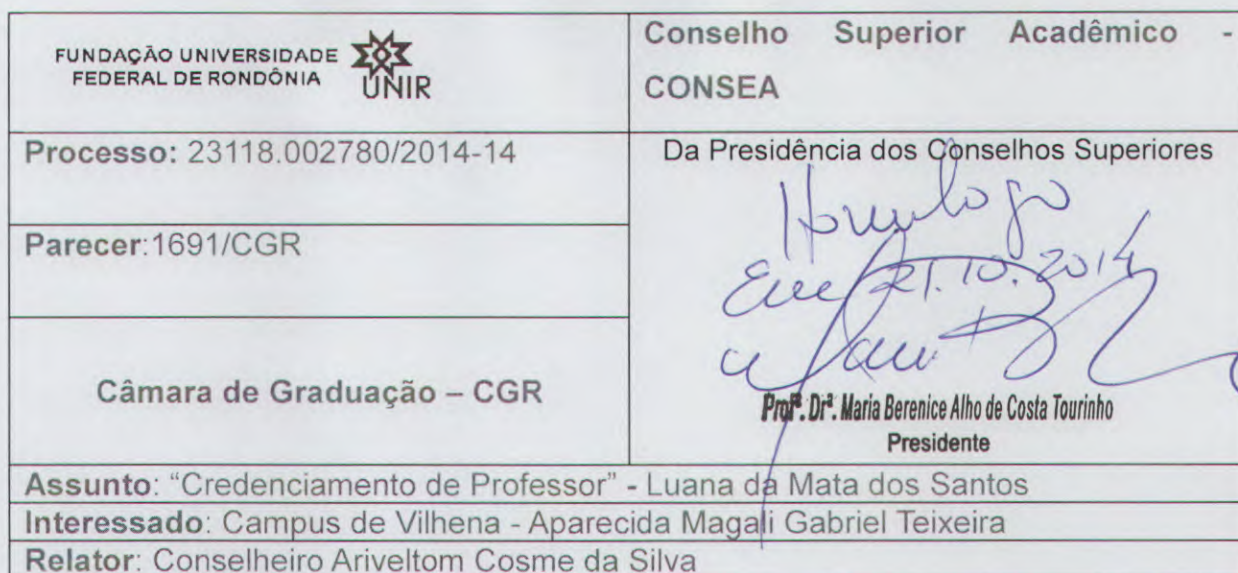 FUNDAÇÃO UNIVERSIDADE
FEDERAL DE RONDÔNIA
UNIR
Conselho Superior Acadêmico -
CONSEA
Processo: 23118.002780/2014-14
Da Presidência dos Conselhos Superiores
Parecer:1691/CGR
Homologo
Em 21.10.2014
Câmara de Graduação – CGR
Profª. Drª. Maria Berenice Alho de Costa Tourinho
Presidente
Assunto: “Credenciamento de Professor” - Luana da Mata dos Santos
Interessado: Campus de Vilhena - Aparecida Magali Gabriel Teixeira
Relator: Conselheiro Ariveltom Cosme da Silva